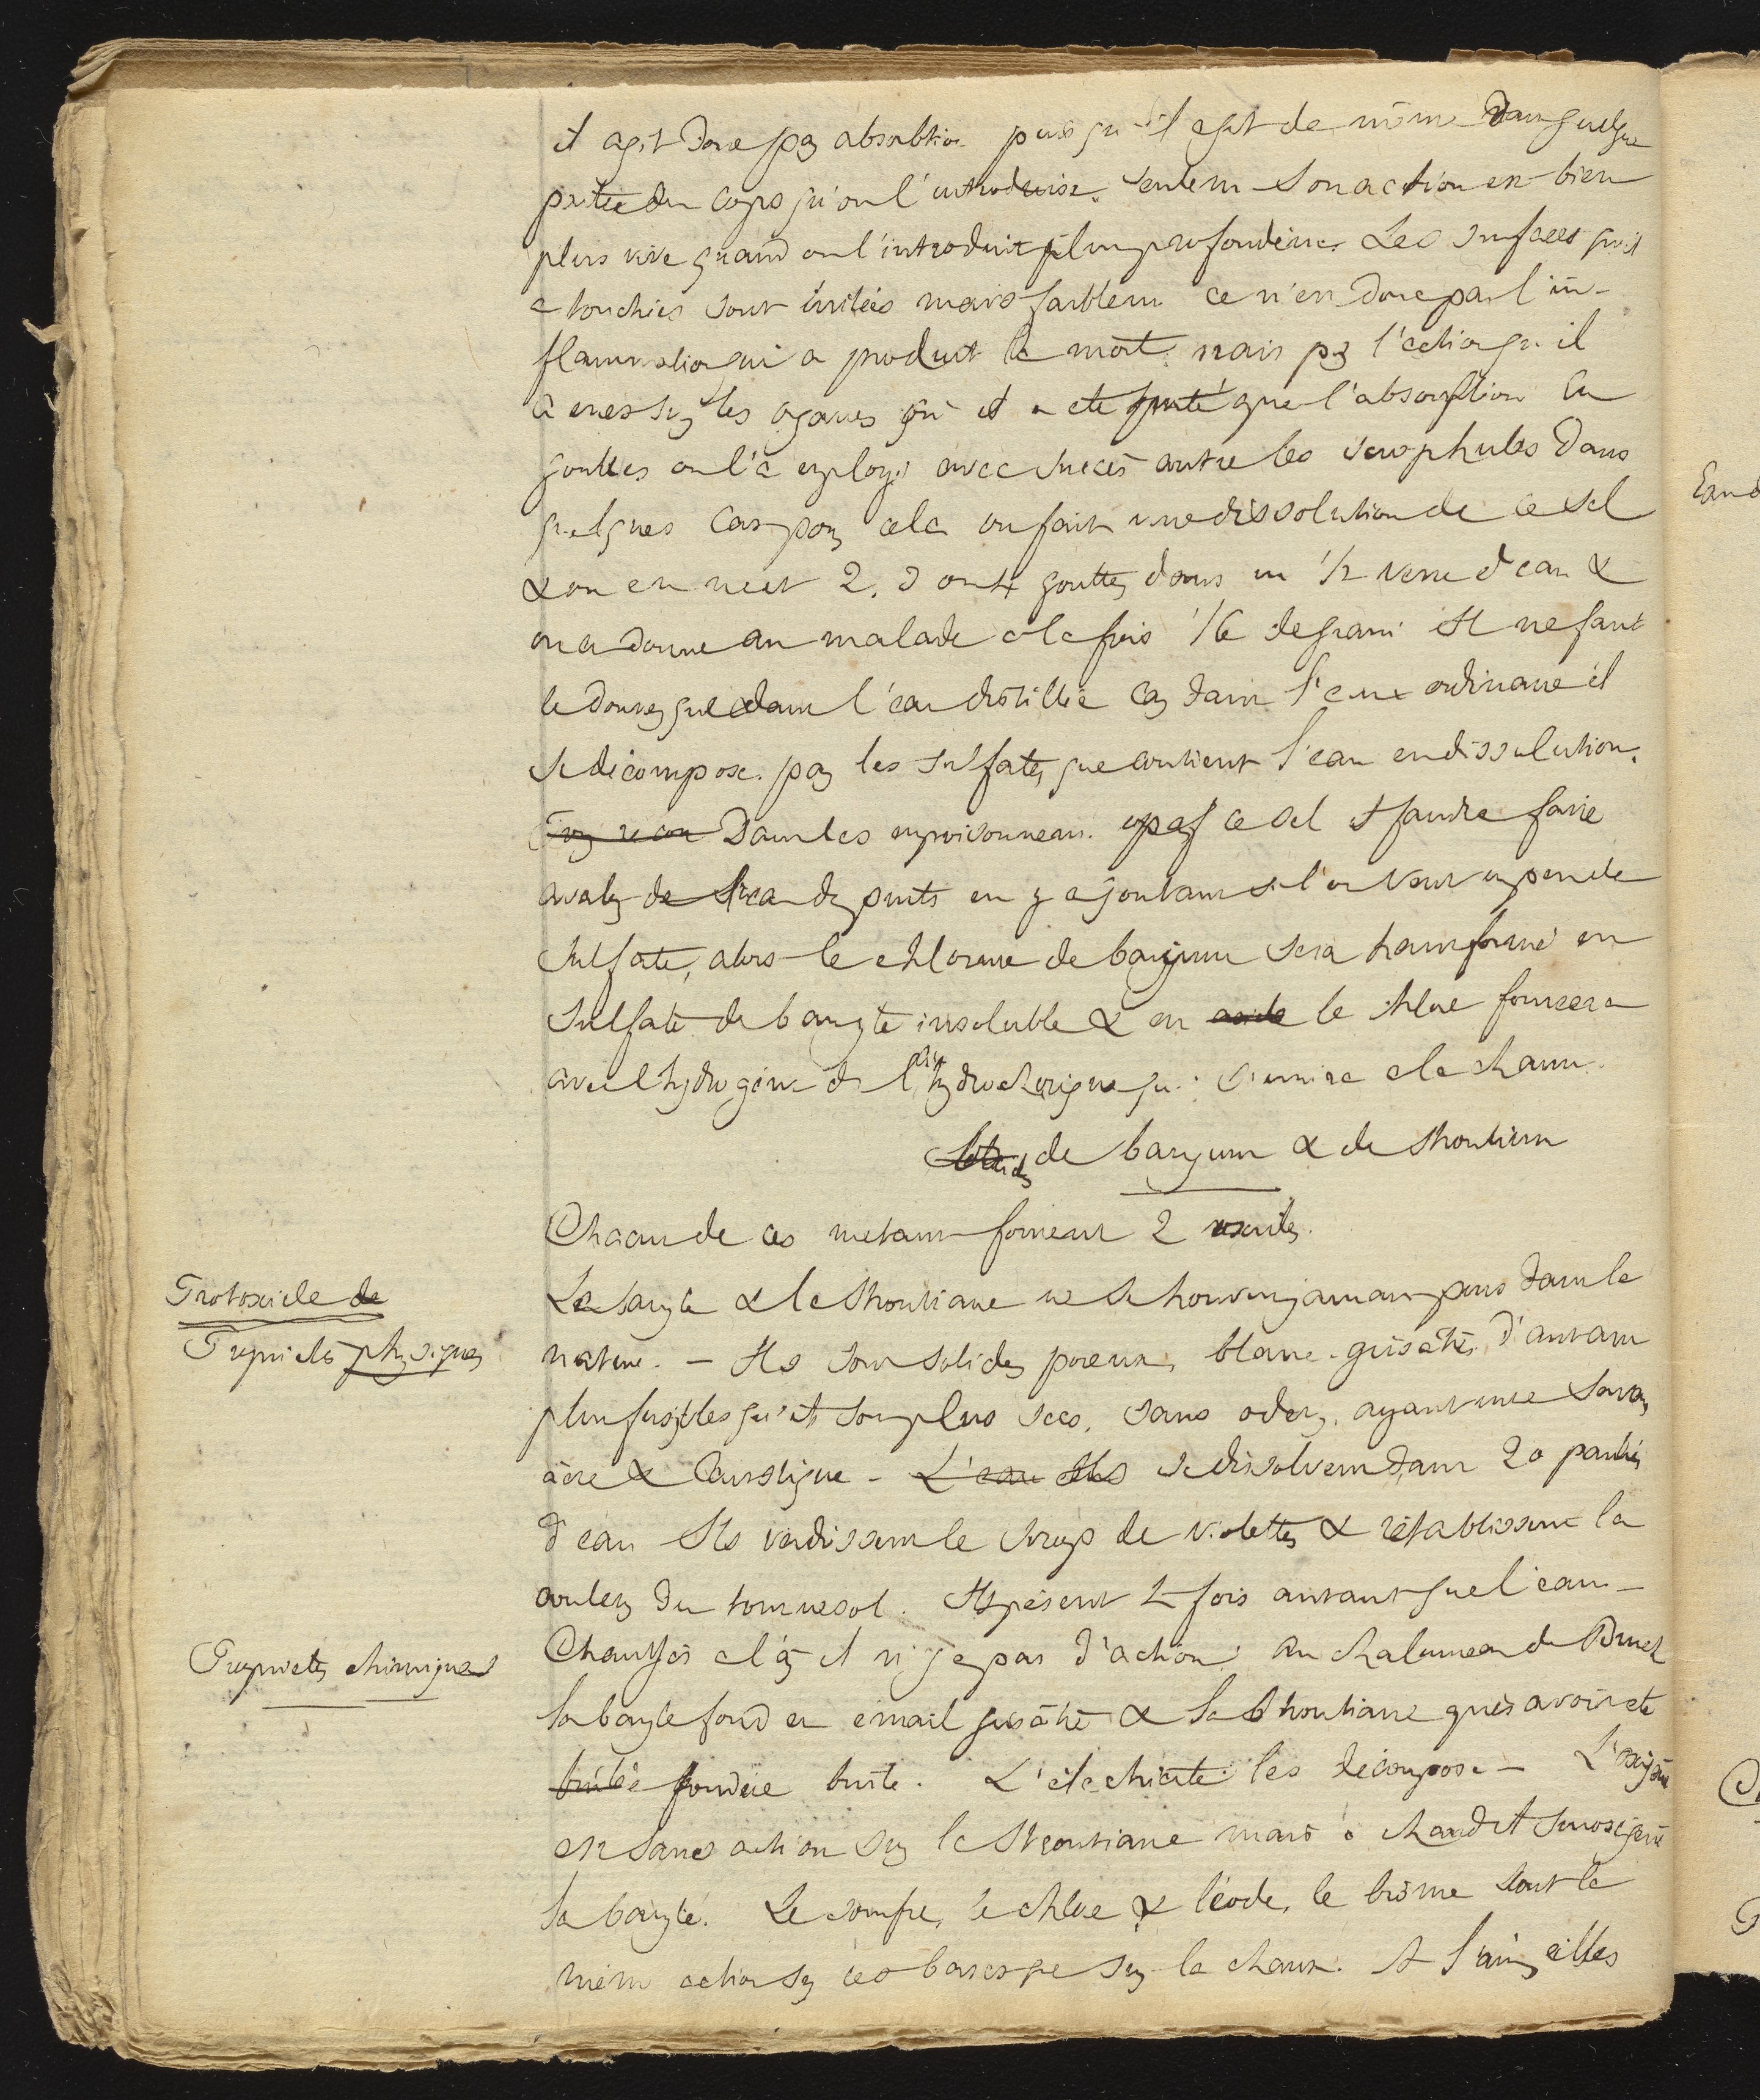 il agit donc par absorbtion puisqu'il agit de même dans quelque
partie du corps qu'on l'introduise. Seulem son action est bien
plus vive quand on l'introduit plus profondém. Les surfaces qu'il
a touchées sont irritées mais faiblem ce n'est donc pas l'in-
flammation qui a produit la mort mais par l'action qu'il
a exer sur les organes où il a été porté que l'absorption En
gouttes on l'a employé avec succès contre les scrophules dans
quelques cas pour cela on fait une dissolution de ce sel
& on en met 2, 3 ou 4 gouttes dans un 1/2 verre d'eau &
on en donne au malade à la fois 1/6 de grain il ne faut
le donner que dans l'eau distillée car dans l'eau ordinaire il
se décompose par les sulfates que contient l'eau en dissolution.
Dans les empoisonnem. par ce sel il faudra faire
avaler de l'eau de puits en y ajoutant si l'on veut un peu de
sulfate, alors le chlorure de baryum sera transformé en
sulfate de baryte insoluble & en acide le chlore formera
avec l'hydrogène de l'hydrochlorique qui s'unira à la chaux.
de baryum & de strontium
Chacun de ces métaux forment 2 oxides.
Protoxide de
La baryte & la strontiane ne se trouvent jamais purs dans la
Propriétés physiques
nature. - Ils sont solides, poreux, blanc-grisâtres, d'autant
plus fusibles qu'ils sont plus secs, sans odeur, ayant une saveur
âcre & caustique - L'eau Ils se dissolvent dans 20 parties
d'eau Ils verdissent le sirop de violettes & rétablissent la
couleur du tournesol. Ils pèsent 4 fois autant que l'eau -
Propriétés chimiques
Chauffés à l'air il n'y a pas d'action. Au chalumeau de
la baryte fond en émail grisâtre & la strontiane après avoir été
brulée fondue brule. L'électricité les décompose - L'oxigène
est sans action sur la strontiane mais à chaud il suroxigène
la baryte. Le soufre, le chlore & l'iode, le brôme sont la
même action sur ces bases que sur la chaux. A l'air, elles